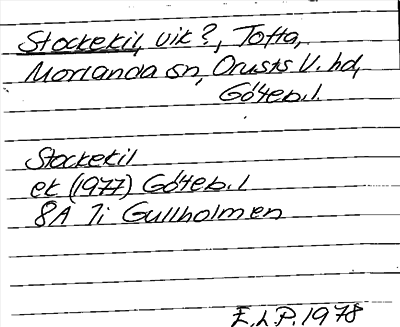 Stockekil, vik?, Tofta,
Morlanda sn, Orusts V. hd,
Göteb.l.
Stockekil
ek (1977) Göteb.l
8A 7i Gullholmen
E.L.P. 1978